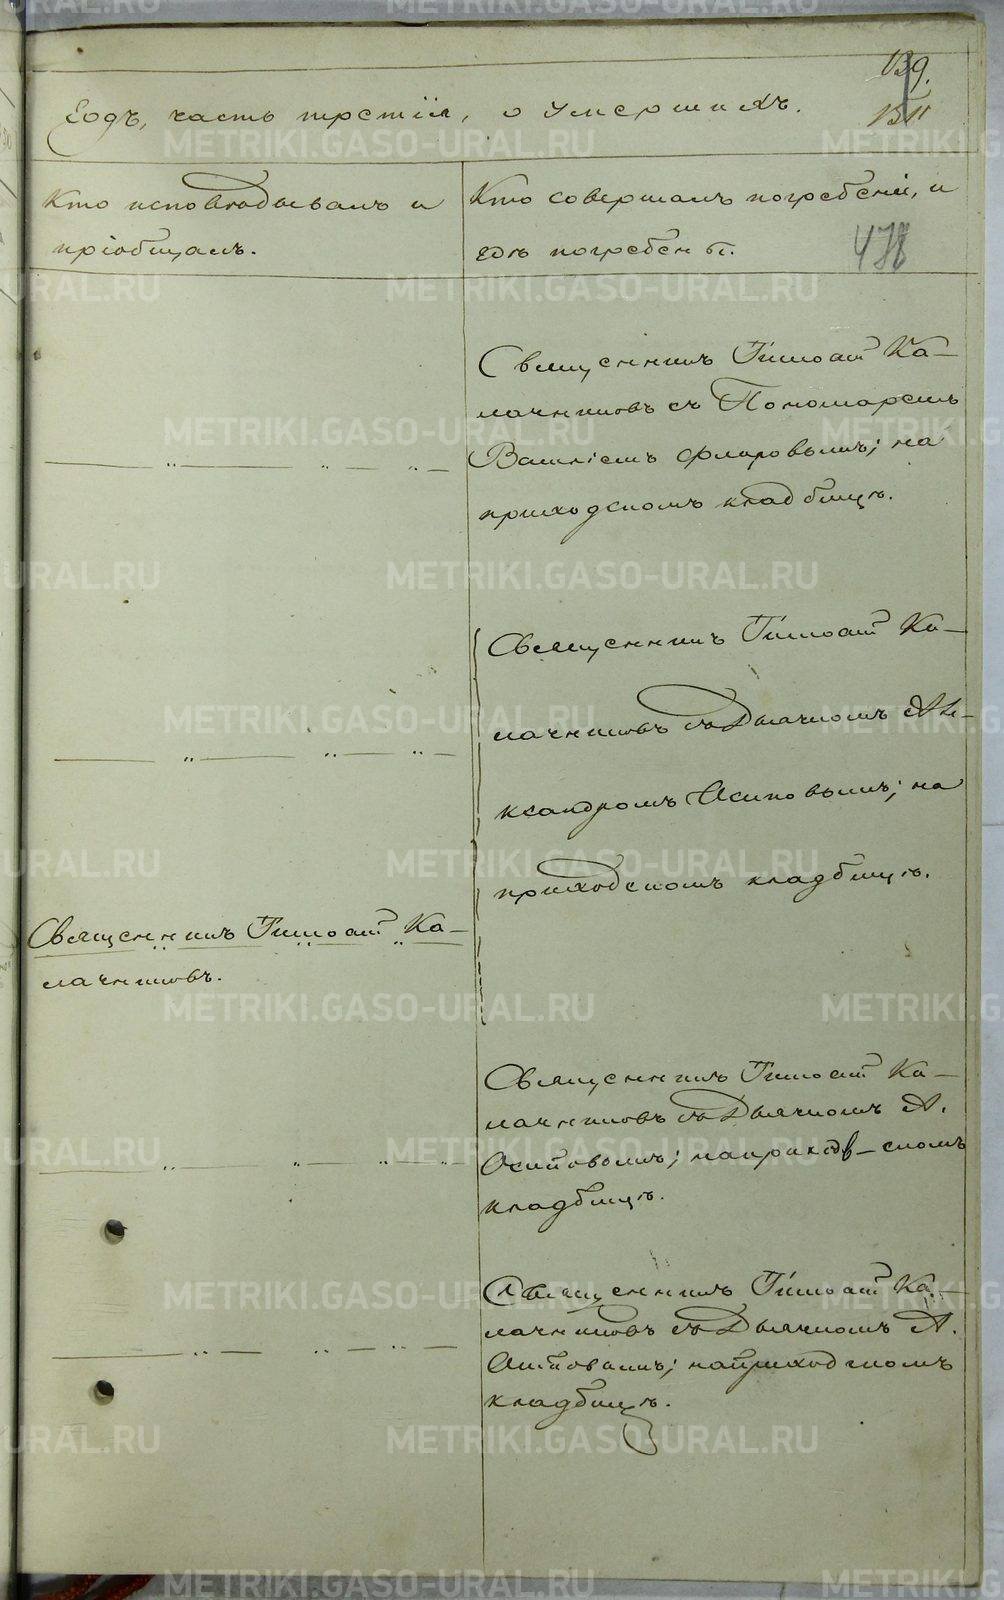 139.
годъ, часть третія, о умершихъ.
Кто исповѣдывалъ и
пріобщалъ.
Кто совершалъ погребеніе, и
гдѣ погребены.
478
Священникъ Тимоѳей Ка-
лачниковъ съ Пономаремъ
Василіемъ Флоровымъ; на
приходскомъ кладбищѣ.
Священникъ Тимоѳей Ка-
лачниковъ съ Дьячкомъ Але-
ксандромъ Осиповымъ; на
приходскомъ кладбищѣ.
Священникъ Тимоѳей Ка-
лачниковъ.
Священникъ Тимоѳей Ка-
лачниковъ съ Дьячкомъ А.
Осиповымъ; на приход-скомъ
кладбищѣ.
Священникъ Тимоѳей Ка-
лачниковъ съ Дьячкомъ А.
Осиповымъ; на приходскомъ
кладбищѣ.
METRIKI.GASO-URAL.RU